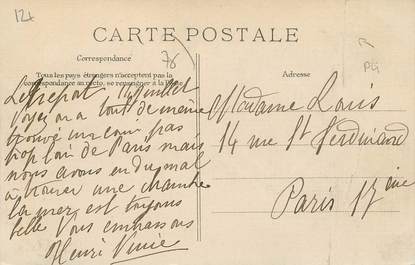 124
CARTE POSTALE
Correspondance
76
Tous les pays étrangers n'acceptent pas la
correspondance au recto, se renseigner à la Poste
Le Tréport 14 Juillet
Voyez on a tout de même
trouvé un coin pas
trop loin de Paris mais
nous avons eu du mal
à trouver une chambre
la mer est toujours
belle Vous embrassons
Henri
Adresse
Madame Louis
14 rue St Ferdinand
Paris 17 ème